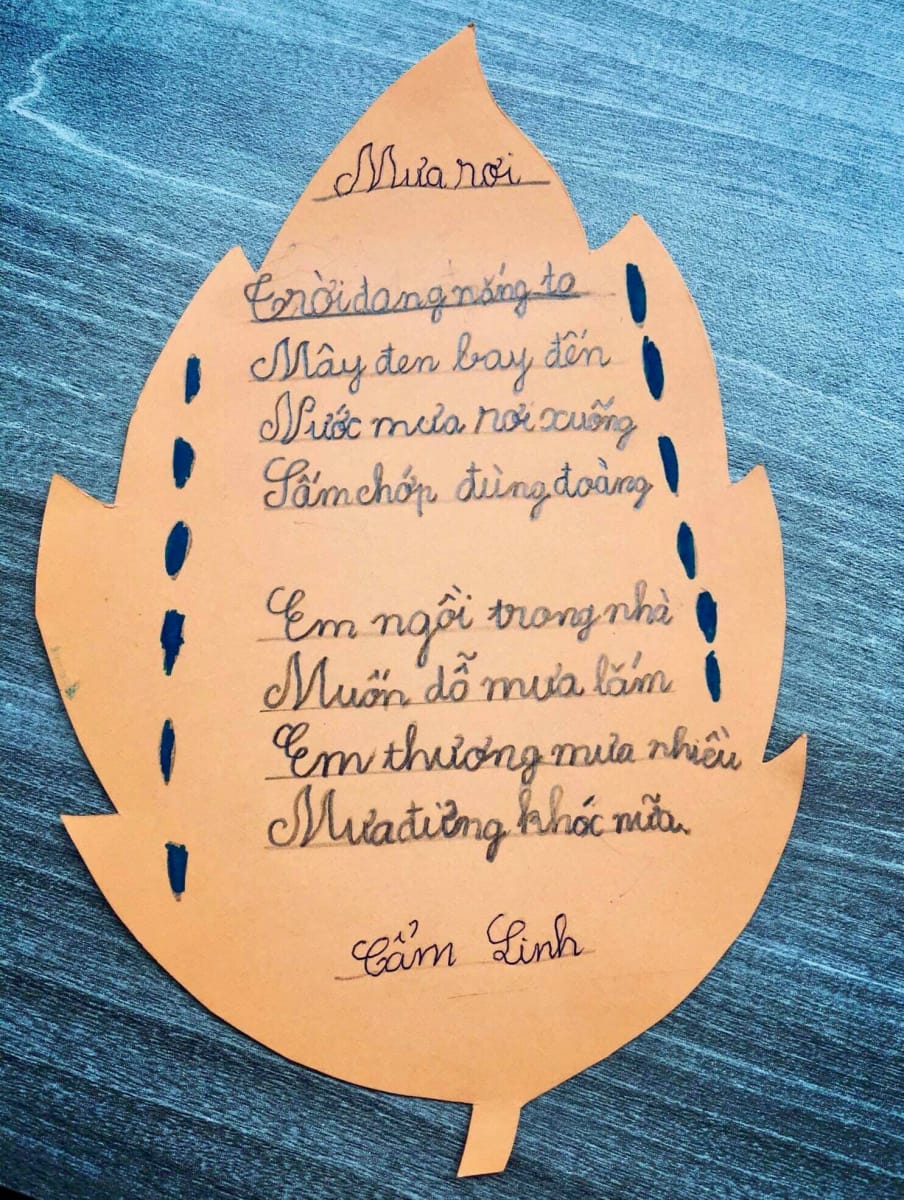 Mưa rơi
Trời đang nắng to
Mây đen bay đến
Nước mưa rơi xuống
Sấm chớp đùng đoàng
Em ngồi trong nhà
Muốn dỗ mưa lắm
Em thương mưa nhiều
Mưa đừng khóc nữa.
Cẩm Linh